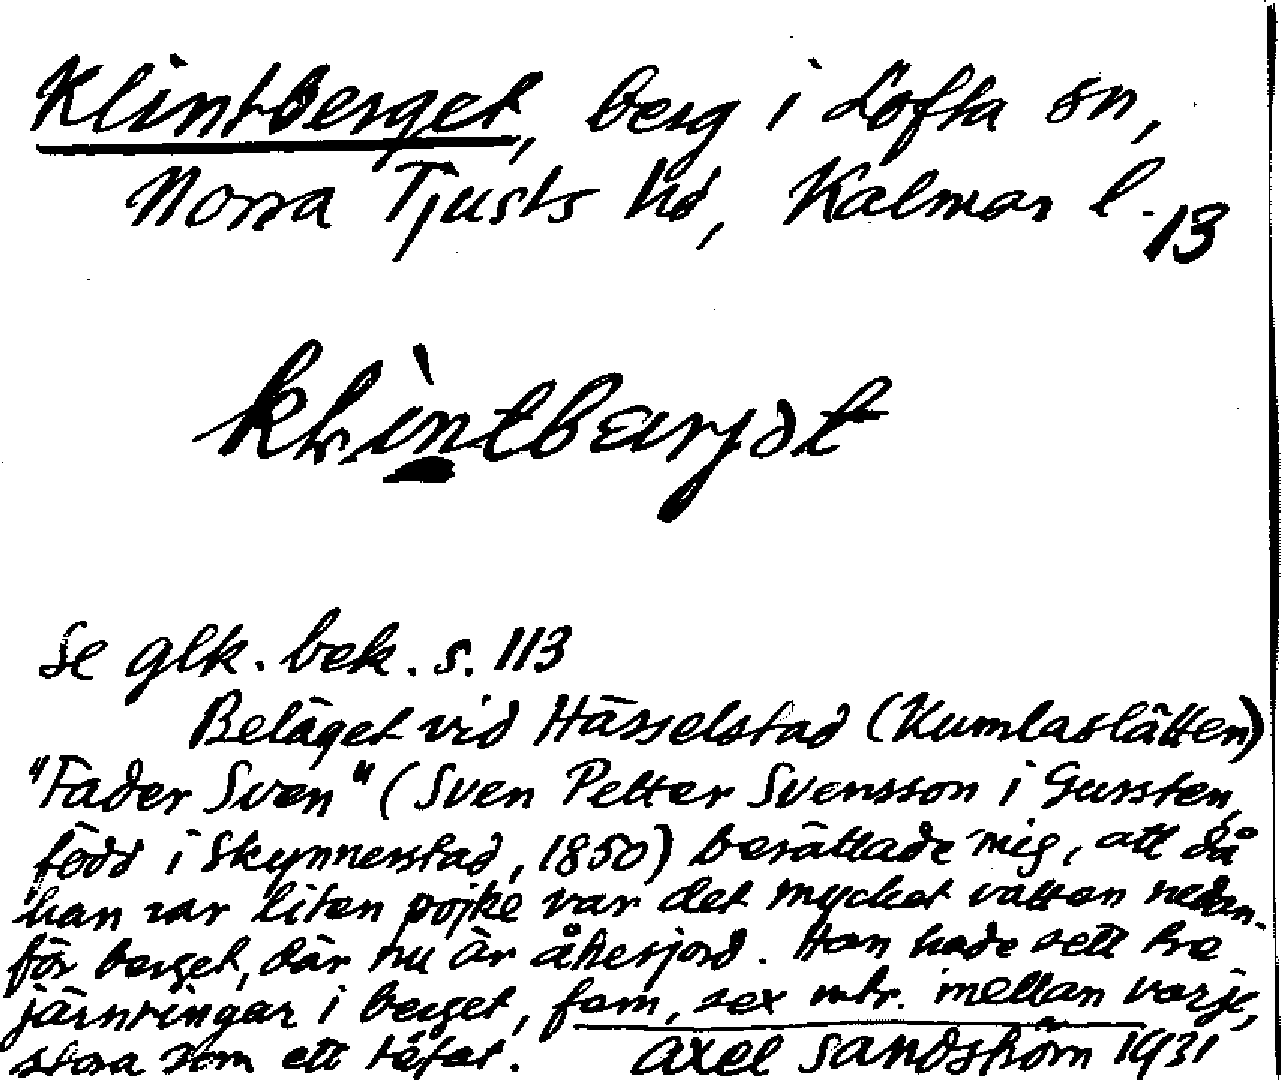 Klintberget, berg i Lofta sn,
Norra Tjusts hd, Kalmar l. 13
Se glk. bek. s. 113
Beläget vid Hässelstad (Kumlaslätten)
"Fader Sven" (Sven Petter Svensson i Gursten,
född i Skynnerstad, 1850) berättade mig, att då
han var liten pojke var det mycket vatten nedan-
för berget, där nu är åkerjord. Han hade sett tre
järnringar i berget, fem, sex mtr. mellan varje,
stora som ett tefat. Axel Sandström 1931